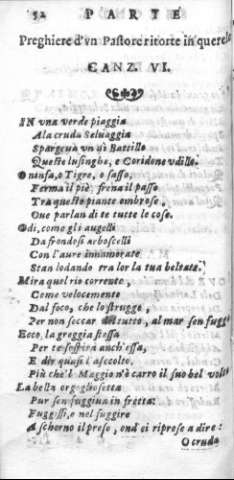 52 PARTE
Preghiere d'vn Pastore ritorte in querele
CANZ. VI.
IN vna verde piaggia
A la cruda Seluaggia
Spargeua vn dì Battillo
Queste lusinghe, e Coridone vdillo.
O ninfa, o Tigre, o sasso,
Ferma il piè, frena il passo
Tra queste piante ombrose,
Oue parlan di te tutte le cose.
Odi, come gli augelli
Da frondosi arboscelli
Con l'aure innamorate
Stan lodando tra lor la tua beltate.
Mira quel rio corrente,
Come velocemente
Dal foco, che lo strugge,
Per non seccar del tutto, al mar sen fugge
Ecco, la greggia stessa
Per te sospira anch'essa,
E dir quasi l'ascolto,
Più che'l Maggio n'è caro il suo bel volto
La bella orgogliosetta
Pur sen fuggiua in fretta:
Fuggissi, e nel fuggire
A scherno il prese, ond'ei riprese a dire:
O cruda